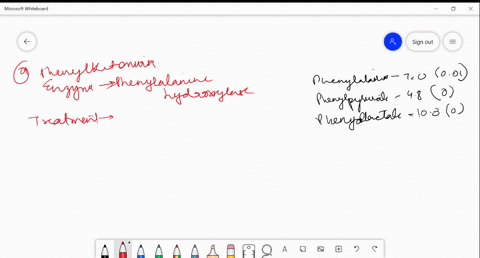 Microsoft Whiteboard
Sign out
9 Phenylketonuria
Enzyme → Phenylalanine
hydroxylase
Treatment →
Phenylalanine - 7.0 (0.01)
Phenylpyruvate - 4.8 (0)
Phenyllactate - 10.3 (0)